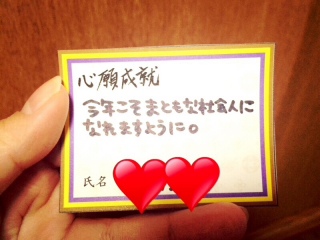 心願成就
今年こそまともな社会人に
なれますように。
氏名